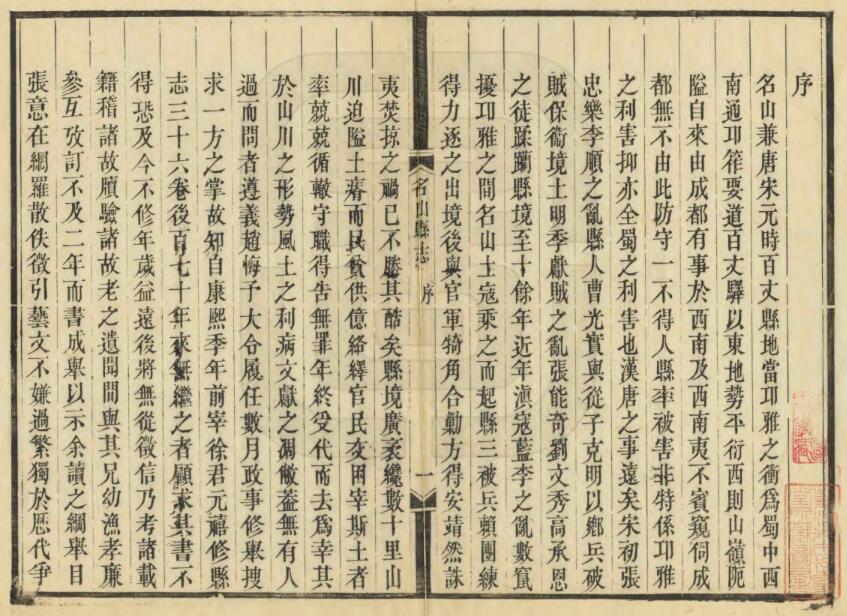 序
名山兼唐宋元時百丈縣地當邛雅之衝爲蜀中西
南通邛筰要道百丈驛以東地勢平衍西則山嶺阨
隘自來由成都有事於西南及西南夷不賓窺伺成
都無不由此防守一不得人縣率被害非特係邛雅
之利害抑亦全蜀之利害也漢唐之事遠矣宋初張
忠樂李順之亂縣人曹光實與從子克明以鄉兵破
賊保衞境土明季獻賊之亂張能奇劉文秀高承恩
之徒蹂躪縣境至十餘年近年滇寇藍李之亂數竄
擾邛雅之間名山土寇乘之而起縣三被兵賴團練
得力逐之出境後與官軍犄角合勦方得安靖然誅
名山縣志
序
一
夷焚掠之禍已不勝其酷矣縣境廣袤纔數十里山
川迫隘土瘠而民貧供億絡繹官民交困宰斯土者
率兢兢循轍守職得告無罪年終受代而去爲幸其
於山川之形勢風土之利病文獻之凋敝葢無有人
過而問者遵義趙悔予大令履任數月政事修舉搜
求一方之掌故知自康熙季年前宰徐君元禧修縣
志三十六卷後百七十年來無繼之者顧求其書不
得恐及今不修年歲益遠後將無從徵信乃考諸載
籍稽諸故牘驗諸故老之遺聞間與其兄幼漁孝廉
參互攷訂不及二年而書成舉以示余讀之綱舉目
張意在網羅散佚徵引藝文不嫌過繁獨於歷代爭